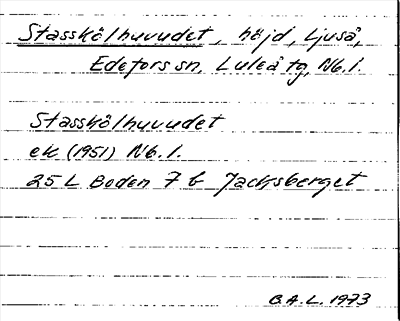 Stasskölhuvudet, höjd, Ljuså,
Edefors sn, Luleå tg, Nb. l.
Stasskölhuvudet
ek (1951) Nb. l.
25 L Boden 7 b Jacksberget
G.A.L. 1973